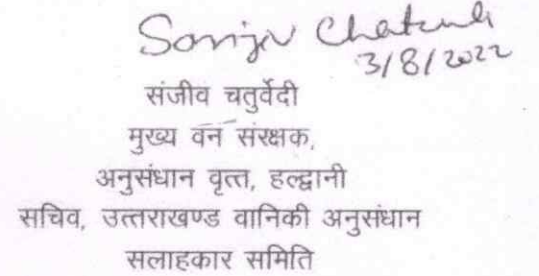 Sanjiv Chaturvedi
3/8/2022
संजीव चतुर्वेदी
मुख्य वन संरक्षक,
अनुसंधान वृत्त, हल्द्वानी
सचिव, उत्तराखण्ड वानिकी अनुसंधान
सलाहकार समिति